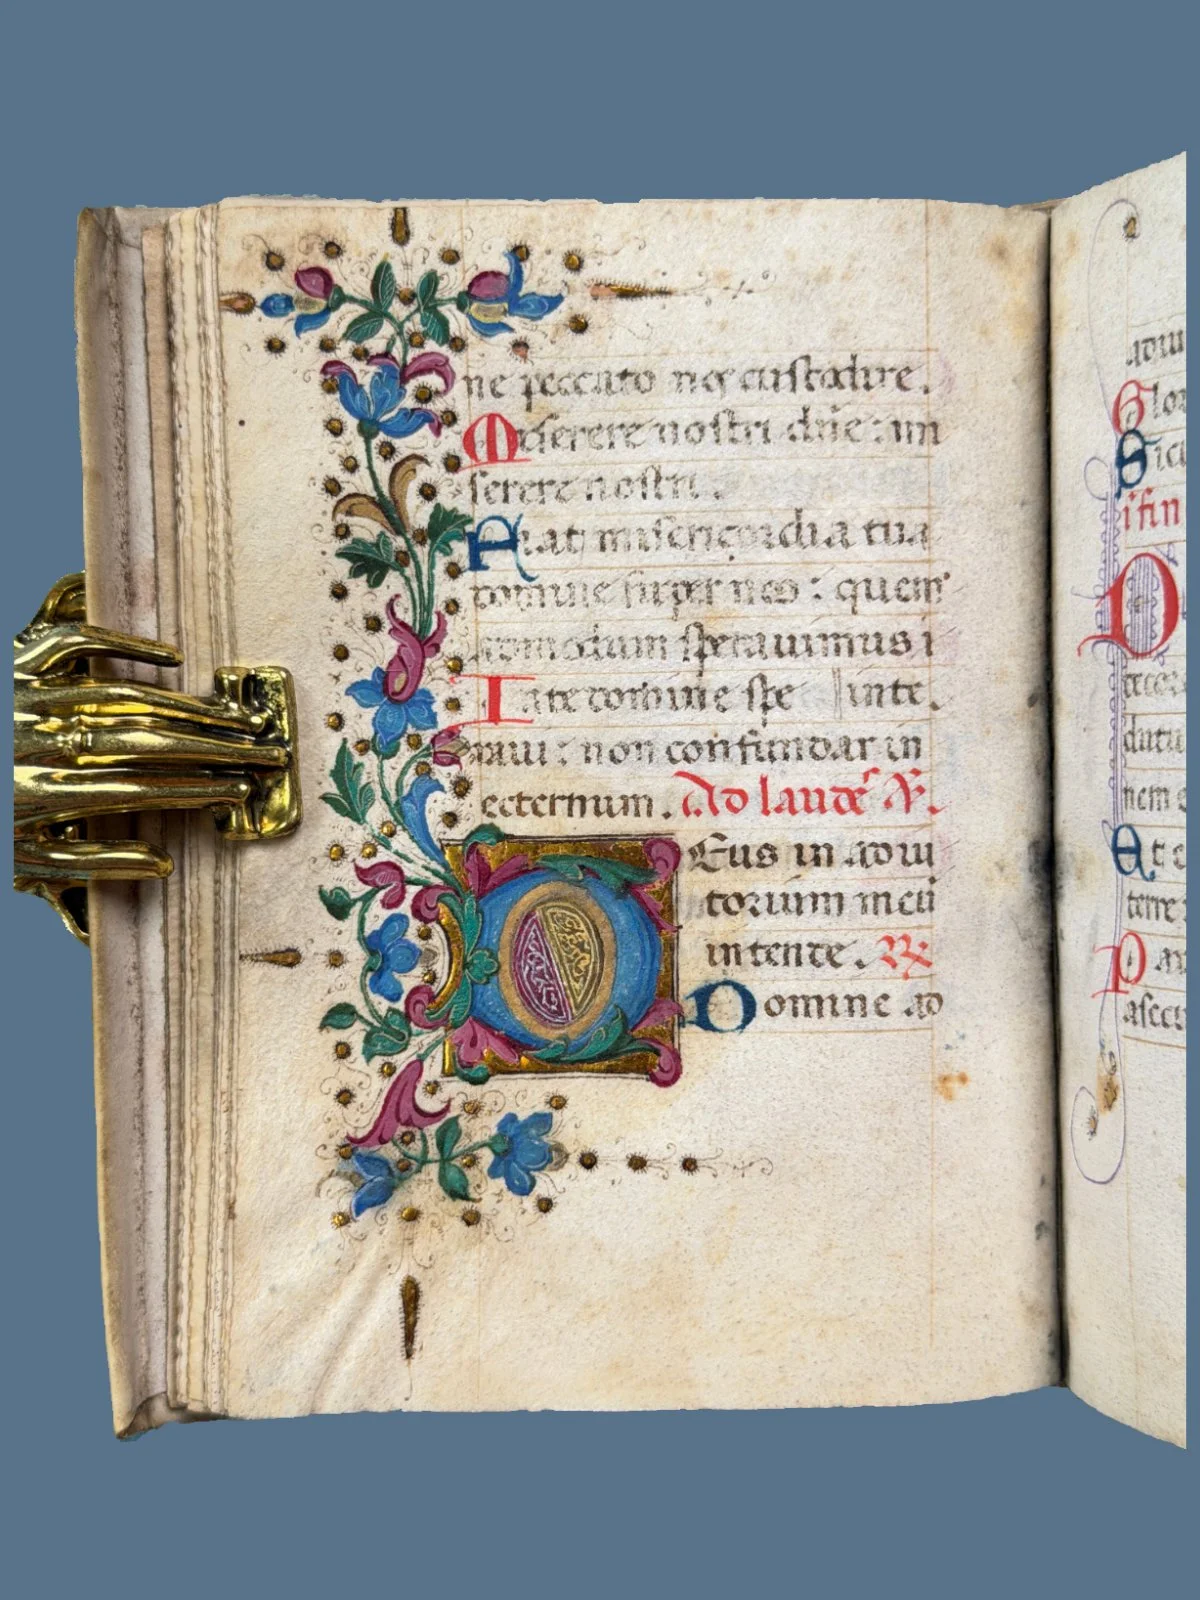 ne peccato nos custodire.
Miserere nostri dñe: mi
serere nostri.
Fiat misericordia tua
domine super nos: quem
admodum speravimus i
In te domine spe inte.
ravi: non confundar in
eeternum. Ad laudes V.
Deus in adiu
torium meũ
intende. Rx
Domine ad
adiu
Glor
Sicu
ifin
D
decor
dutu
nem e
Et e
terre
P
ascen